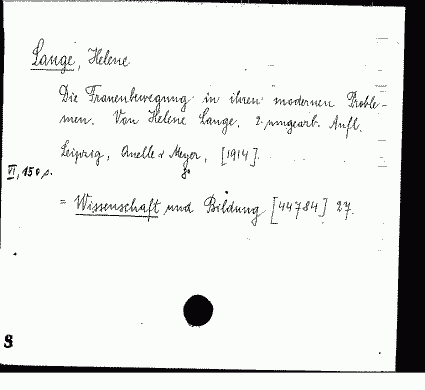 Lange, Helene
Die Frauenbewegung in ihren modernen Proble-
men. Von Helene Lange. 2. umgearb. Aufl.
Leipzig, Quelle & Meyer, [1914].
VI, 150 s. 8°
= Wissenschaft und Bildung [44784] 27.
S